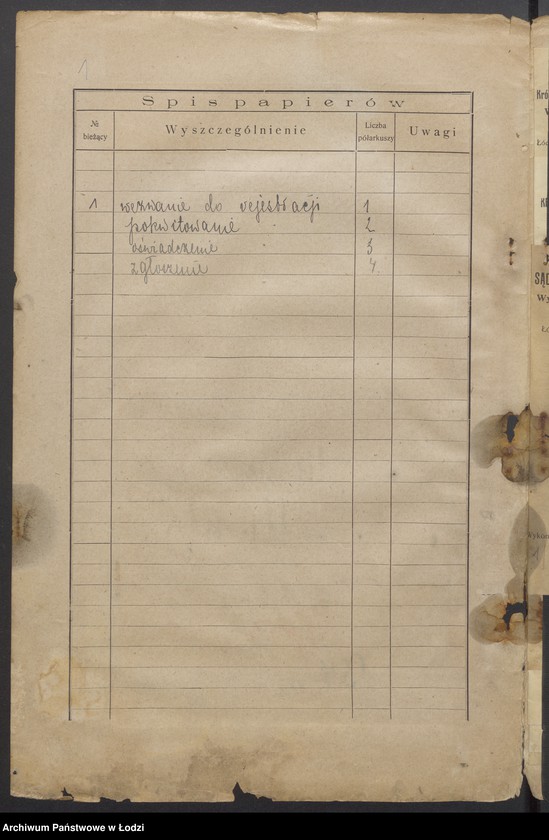 1
Spis papierów
№ bieżący Wyszczególnienie Liczba półarkuszy Uwagi
1 wezwanie do rejestracji 1
pokwitowanie 2
oświadczenie 3
zgłoszenie 4
Kró
Łó
SĄD
Wy
Wykon
Archiwum Państwowe w Łodzi